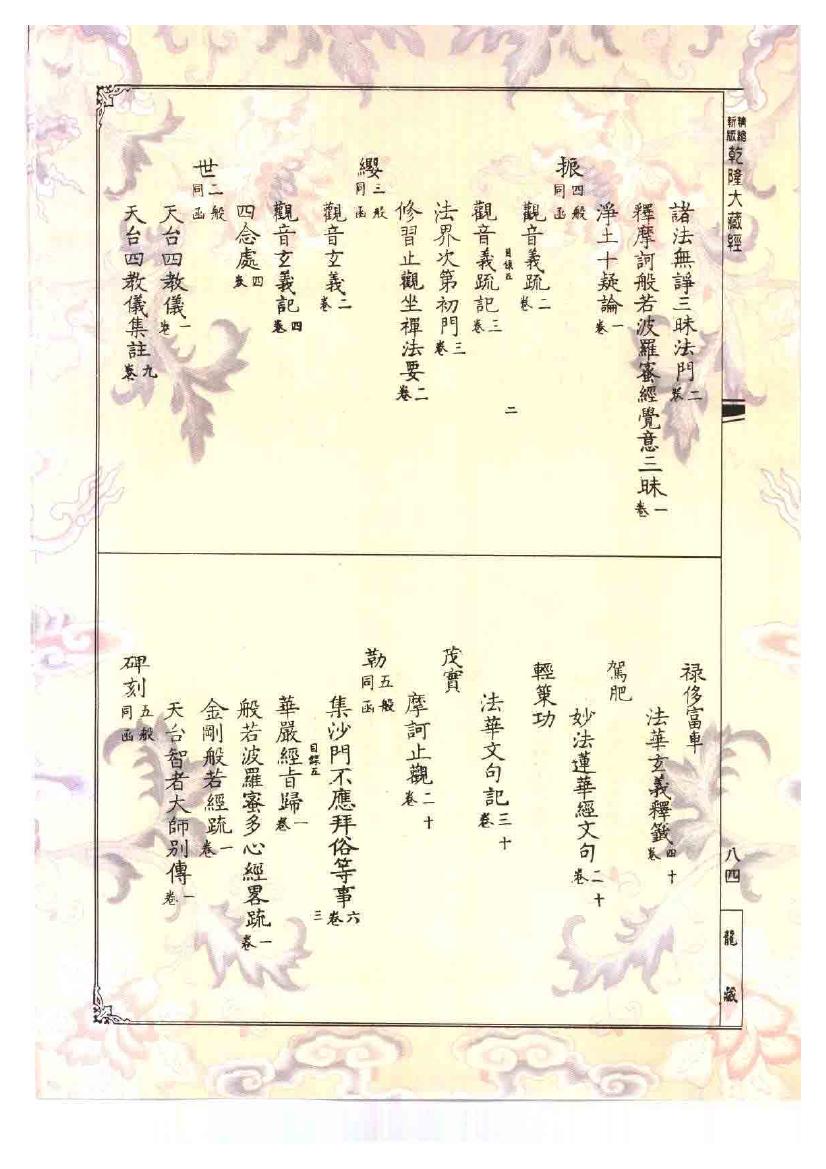 精縮新版 乾隆大藏經
諸法無諍三昧法門二卷
釋摩訶般若波羅蜜經覺意三昧一卷
淨土十疑論一卷
振四般同函
觀音義疏二卷
目錄五 二
觀音義疏記三卷
法界次第初門三卷
修習止觀坐禪法要二卷
纓三般同函
觀音玄義二卷
觀音玄義記四卷
四念處四卷
世二般同函
天台四教儀一卷
天台四教儀集註九卷
祿侈富車
法華玄義釋籤四十卷
駕肥
妙法蓮華經文句二十卷
輕策功
法華文句記三十卷
茂實
摩訶止觀二十卷
勒五般同函
集沙門不應拜俗等事六卷
目錄五 三
華嚴經旨歸一卷
般若波羅蜜多心經畧疏一卷
金剛般若經疏一卷
天台智者大師別傳一卷
碑刻五般同函
八四
龍藏